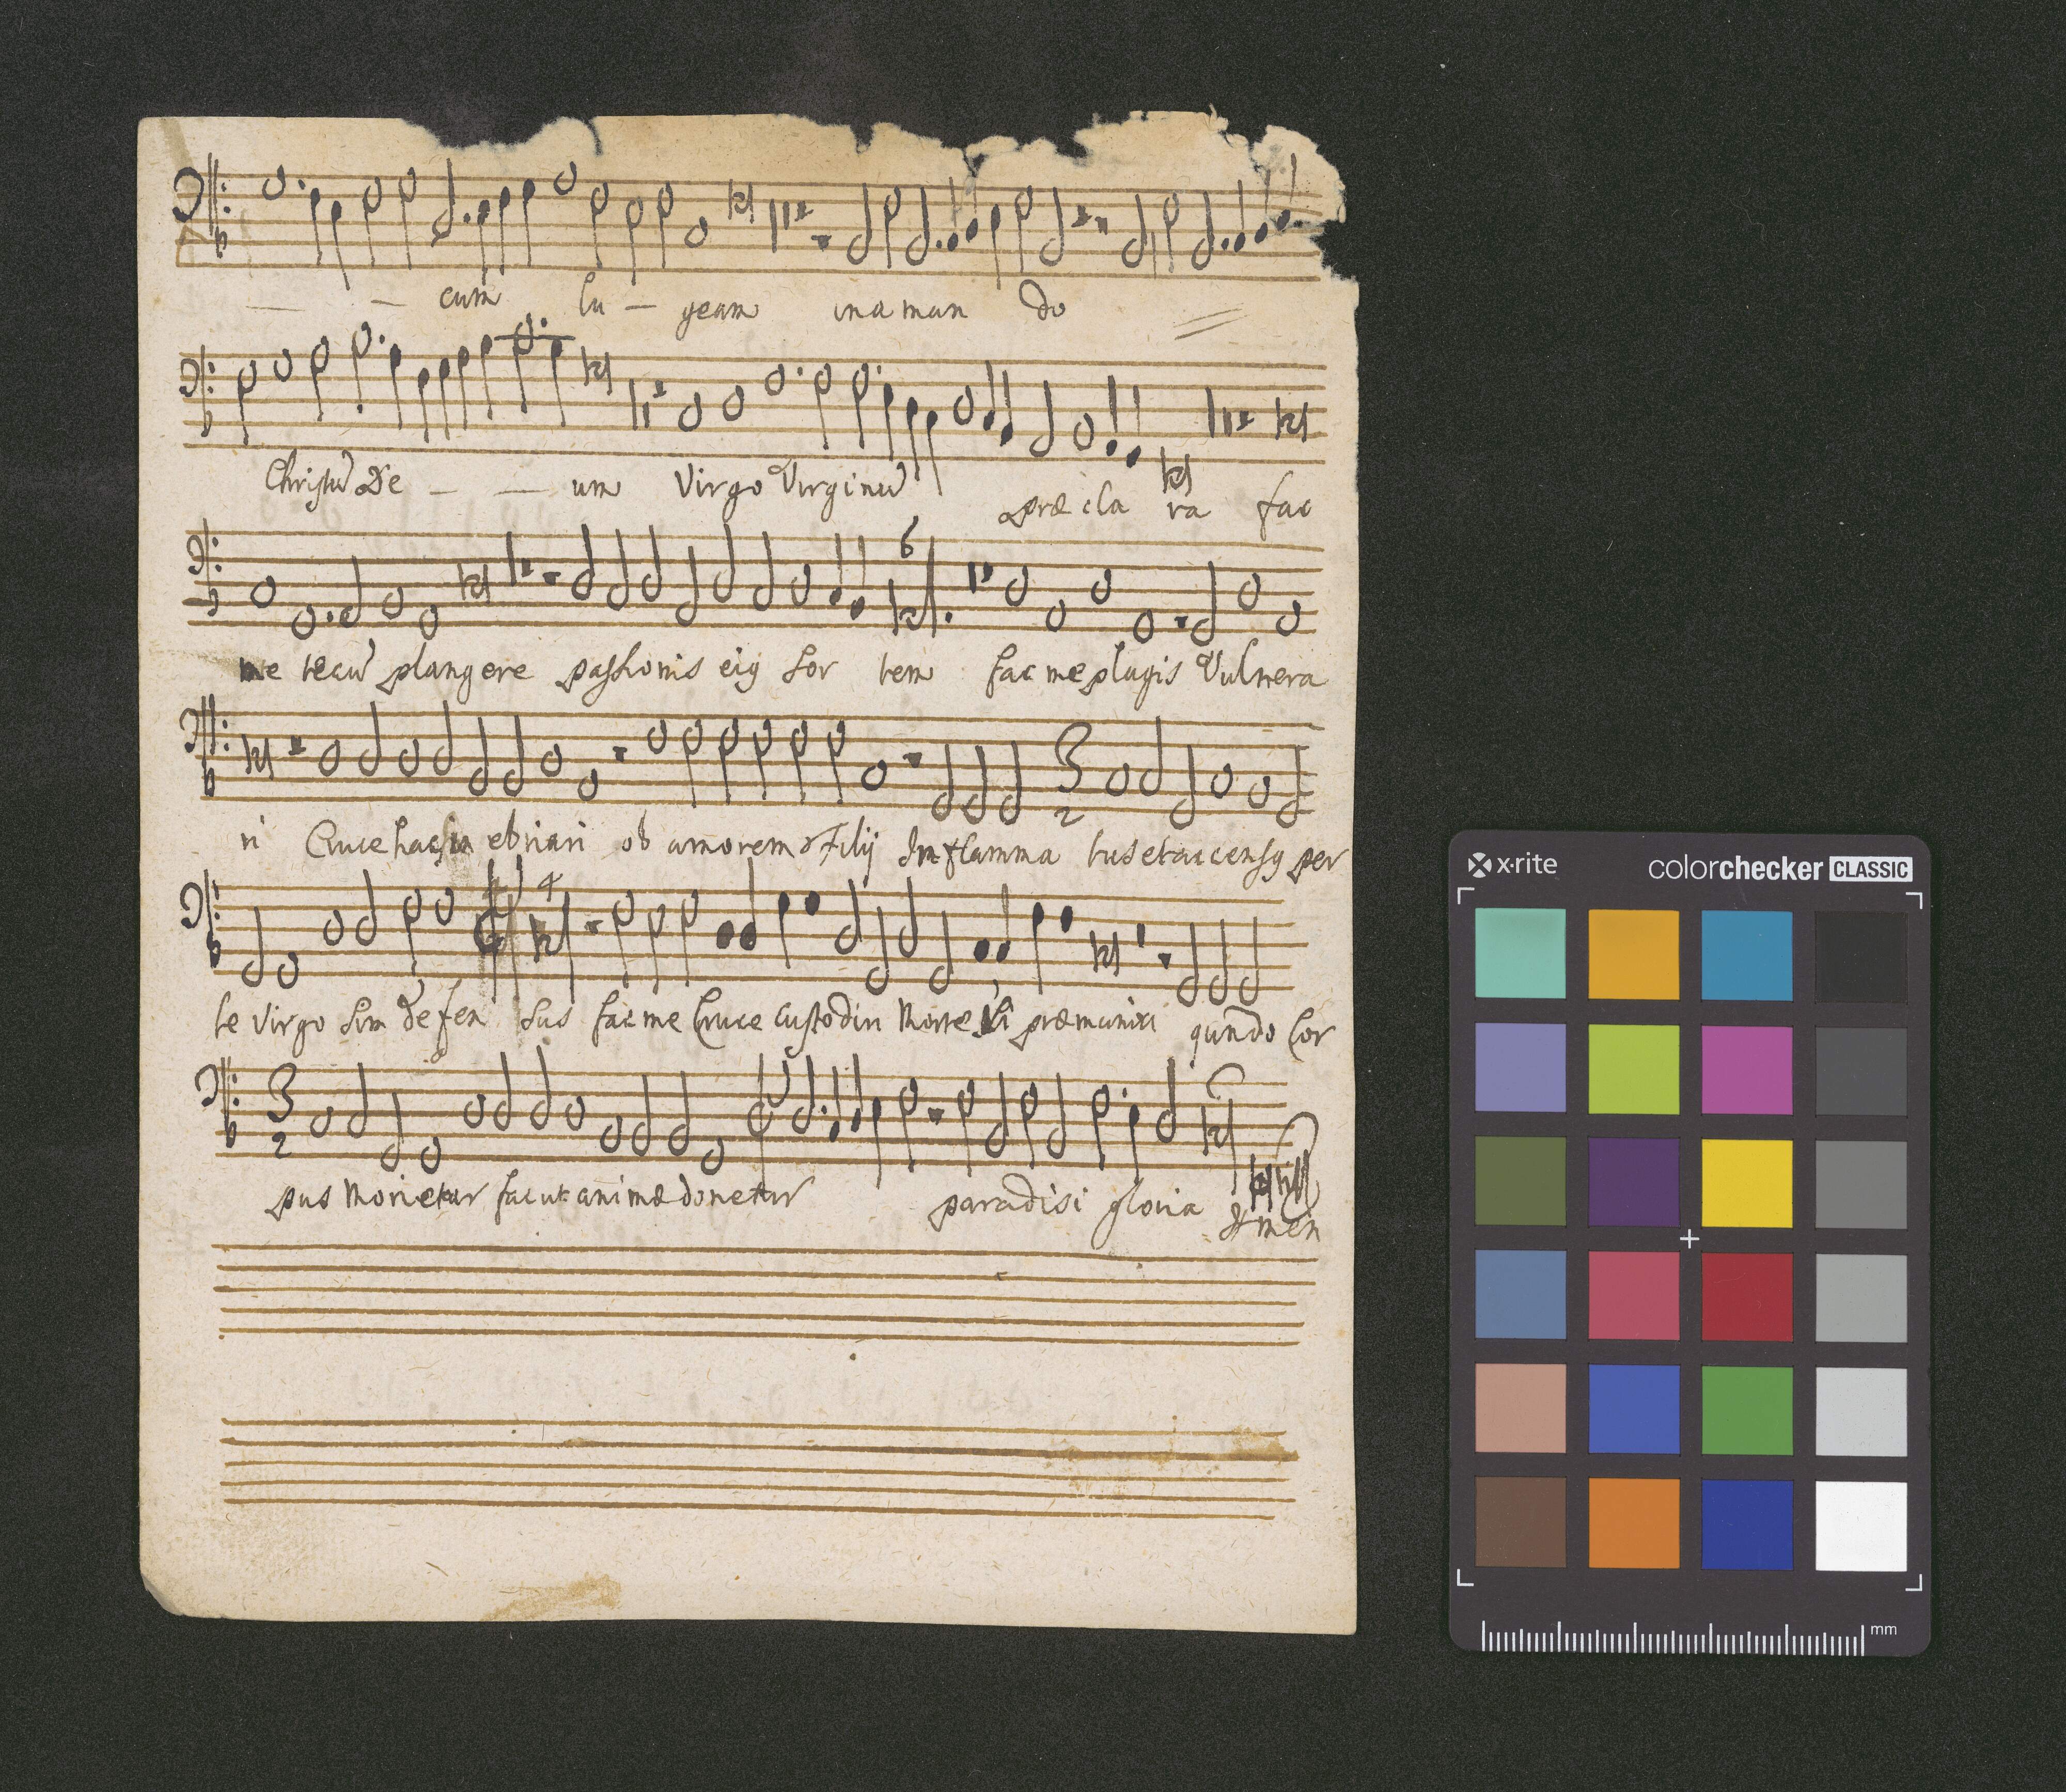 cum lu — geam in a man do
Christū De — — um Virgo Virginū præ cla ra fac
me tecū plangere passionis eiꝰ sor tem fac me plagis Vulnera
6
ri Cruce hac ebriari ob amorem Filij Inflamma tus et accensꝰ per
3
2
te Virgo sim defen sus fac me Cruce Custodiri Morte præmuniri quando Cor
4
pus Morietur fac ut animæ donetur paradisi gloria Amen
3
2
x-rite colorchecker CLASSIC
mm